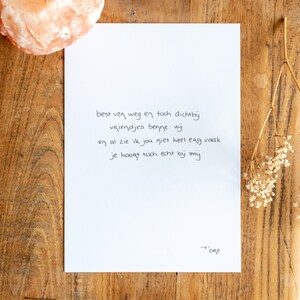 best ver weg en toch dichtbij
vriendjes benne wij
en al zie ik jou niet heel erg vaak
je hoort toch echt bij mij